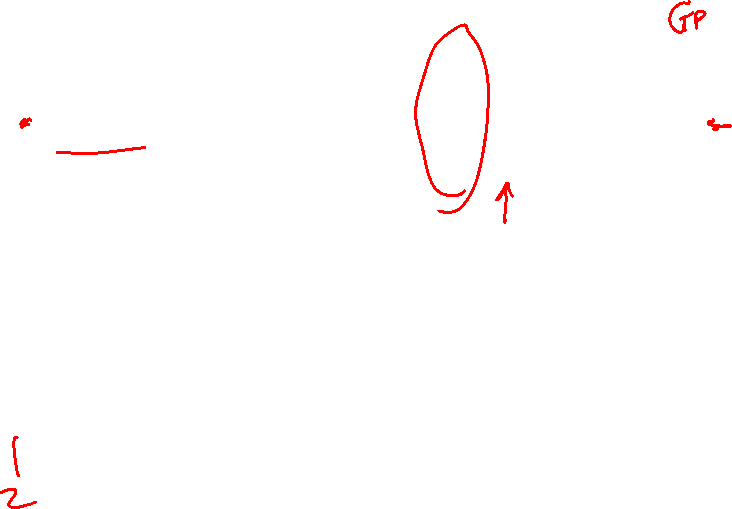 Gp
1
2